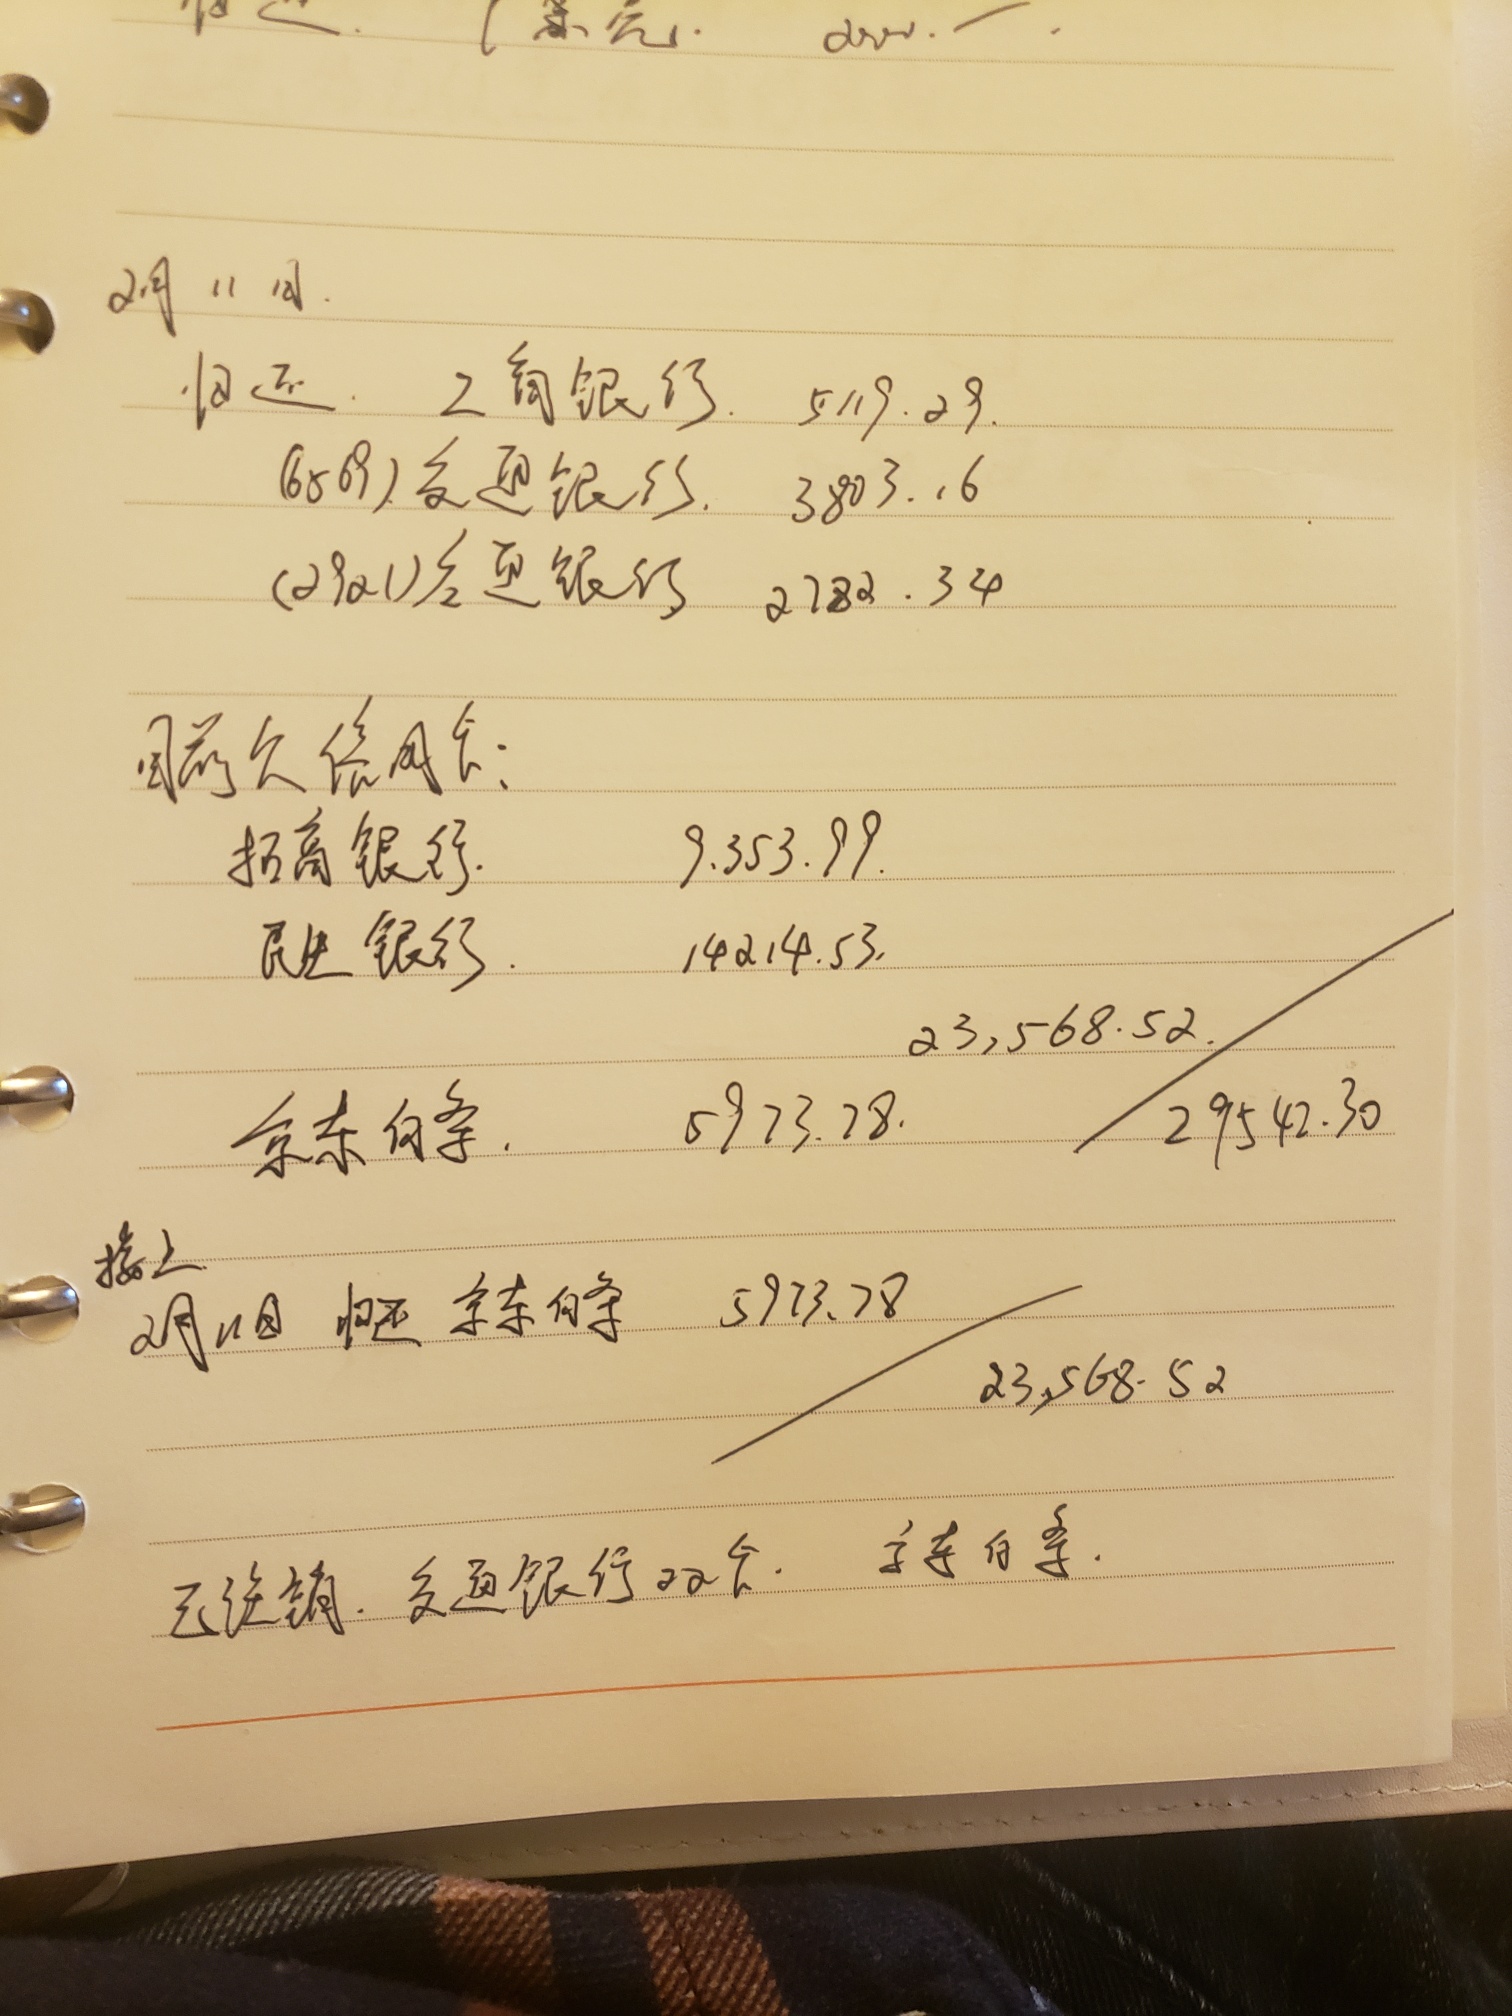 归还. 2000.一.
2月11日.
归还. 工商银行. 5119.29.
(6569).交通银行. 3803.16
(2921)交通银行 2782.34
目前欠信用卡:
招商银行. 9.353.99.
民生银行. 14214.53.
23,568.52.
京东白条. 5973.78. 29542.30
接上
2月11日 归还 京东白条 5973.78
23,568.52
已注销. 交通银行22卡. 京东白条.